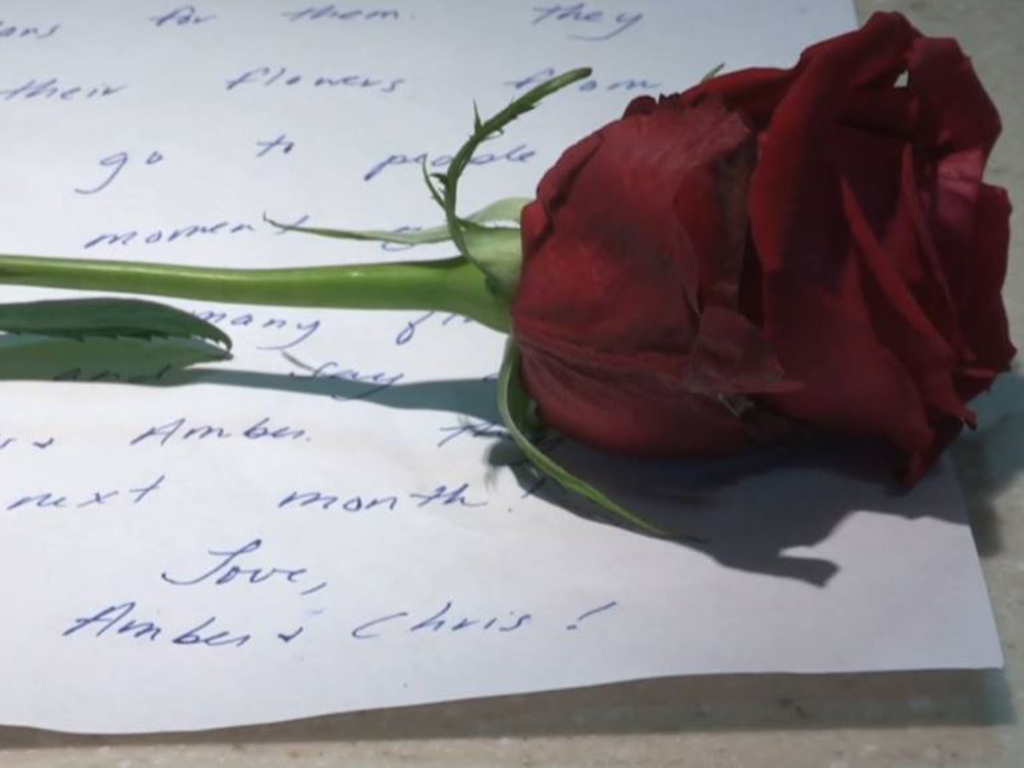 for them. they
their flowers from
go to people
moment
many
and say
& Amber.
next month!
Love,
Amber & Chris!